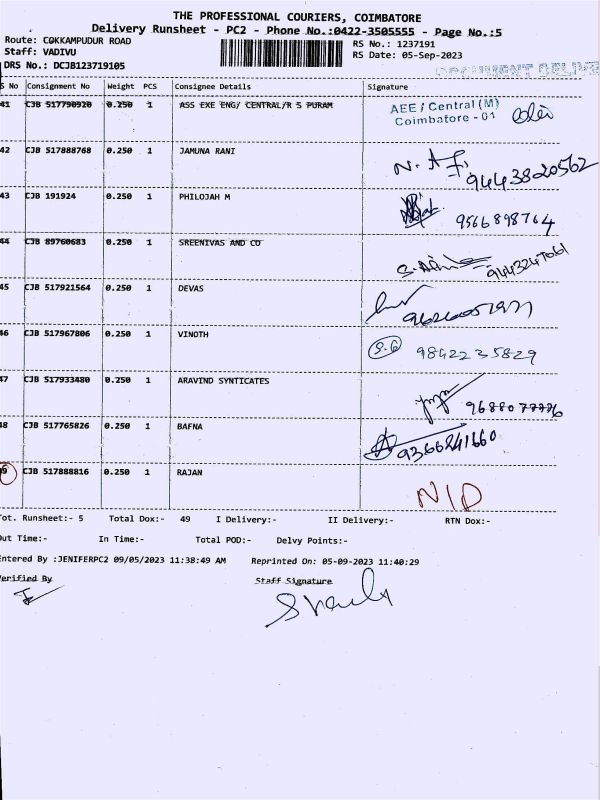 THE PROFESSIONAL COURIERS, COIMBATORE
Delivery Runsheet - PC2 - Phone No.:0422-3505555 - Page No.:5
Route: COKKAMPUDUR ROAD
RS No.: 1237191
Staff: VADIVU
RS Date: 05-Sep-2023
DRS No.: DCJB123719105
DOCUMENT DELIVE
S No Consignment No Weight PCS Consignee Details Signature
41 CJB 517790920 0.250 1 ASS EXE ENG/ CENTRAL/R S PURAM
AEE / Central (M)
Coimbatore - 01
42 CJB 517888768 0.250 1 JAMUNA RANI
9443820562
43 CJB 191924 0.250 1 PHILOJAH M
9566898764
44 CJB 89760683 0.250 1 SREENIVAS AND CO
9443247061
45 CJB 517921564 0.250 1 DEVAS
46 CJB 517967806 0.250 1 VINOTH
S.G 9842235829
47 CJB 517933480 0.250 1 ARAVIND SYNTICATES
48 CJB 517765826 0.250 1 BAFNA
9366241660
49 CJB 517888816 0.250 1 RAJAN
N/D
Tot. Runsheet:- 5 Total Dox:- 49 I Delivery:- II Delivery:- RTN Dox:-
Out Time:- In Time:- Total POD:- Delvy Points:-
Entered By :JENIFERPC2 09/05/2023 11:38:49 AM Reprinted On: 05-09-2023 11:40:29
Verified By Staff Signature